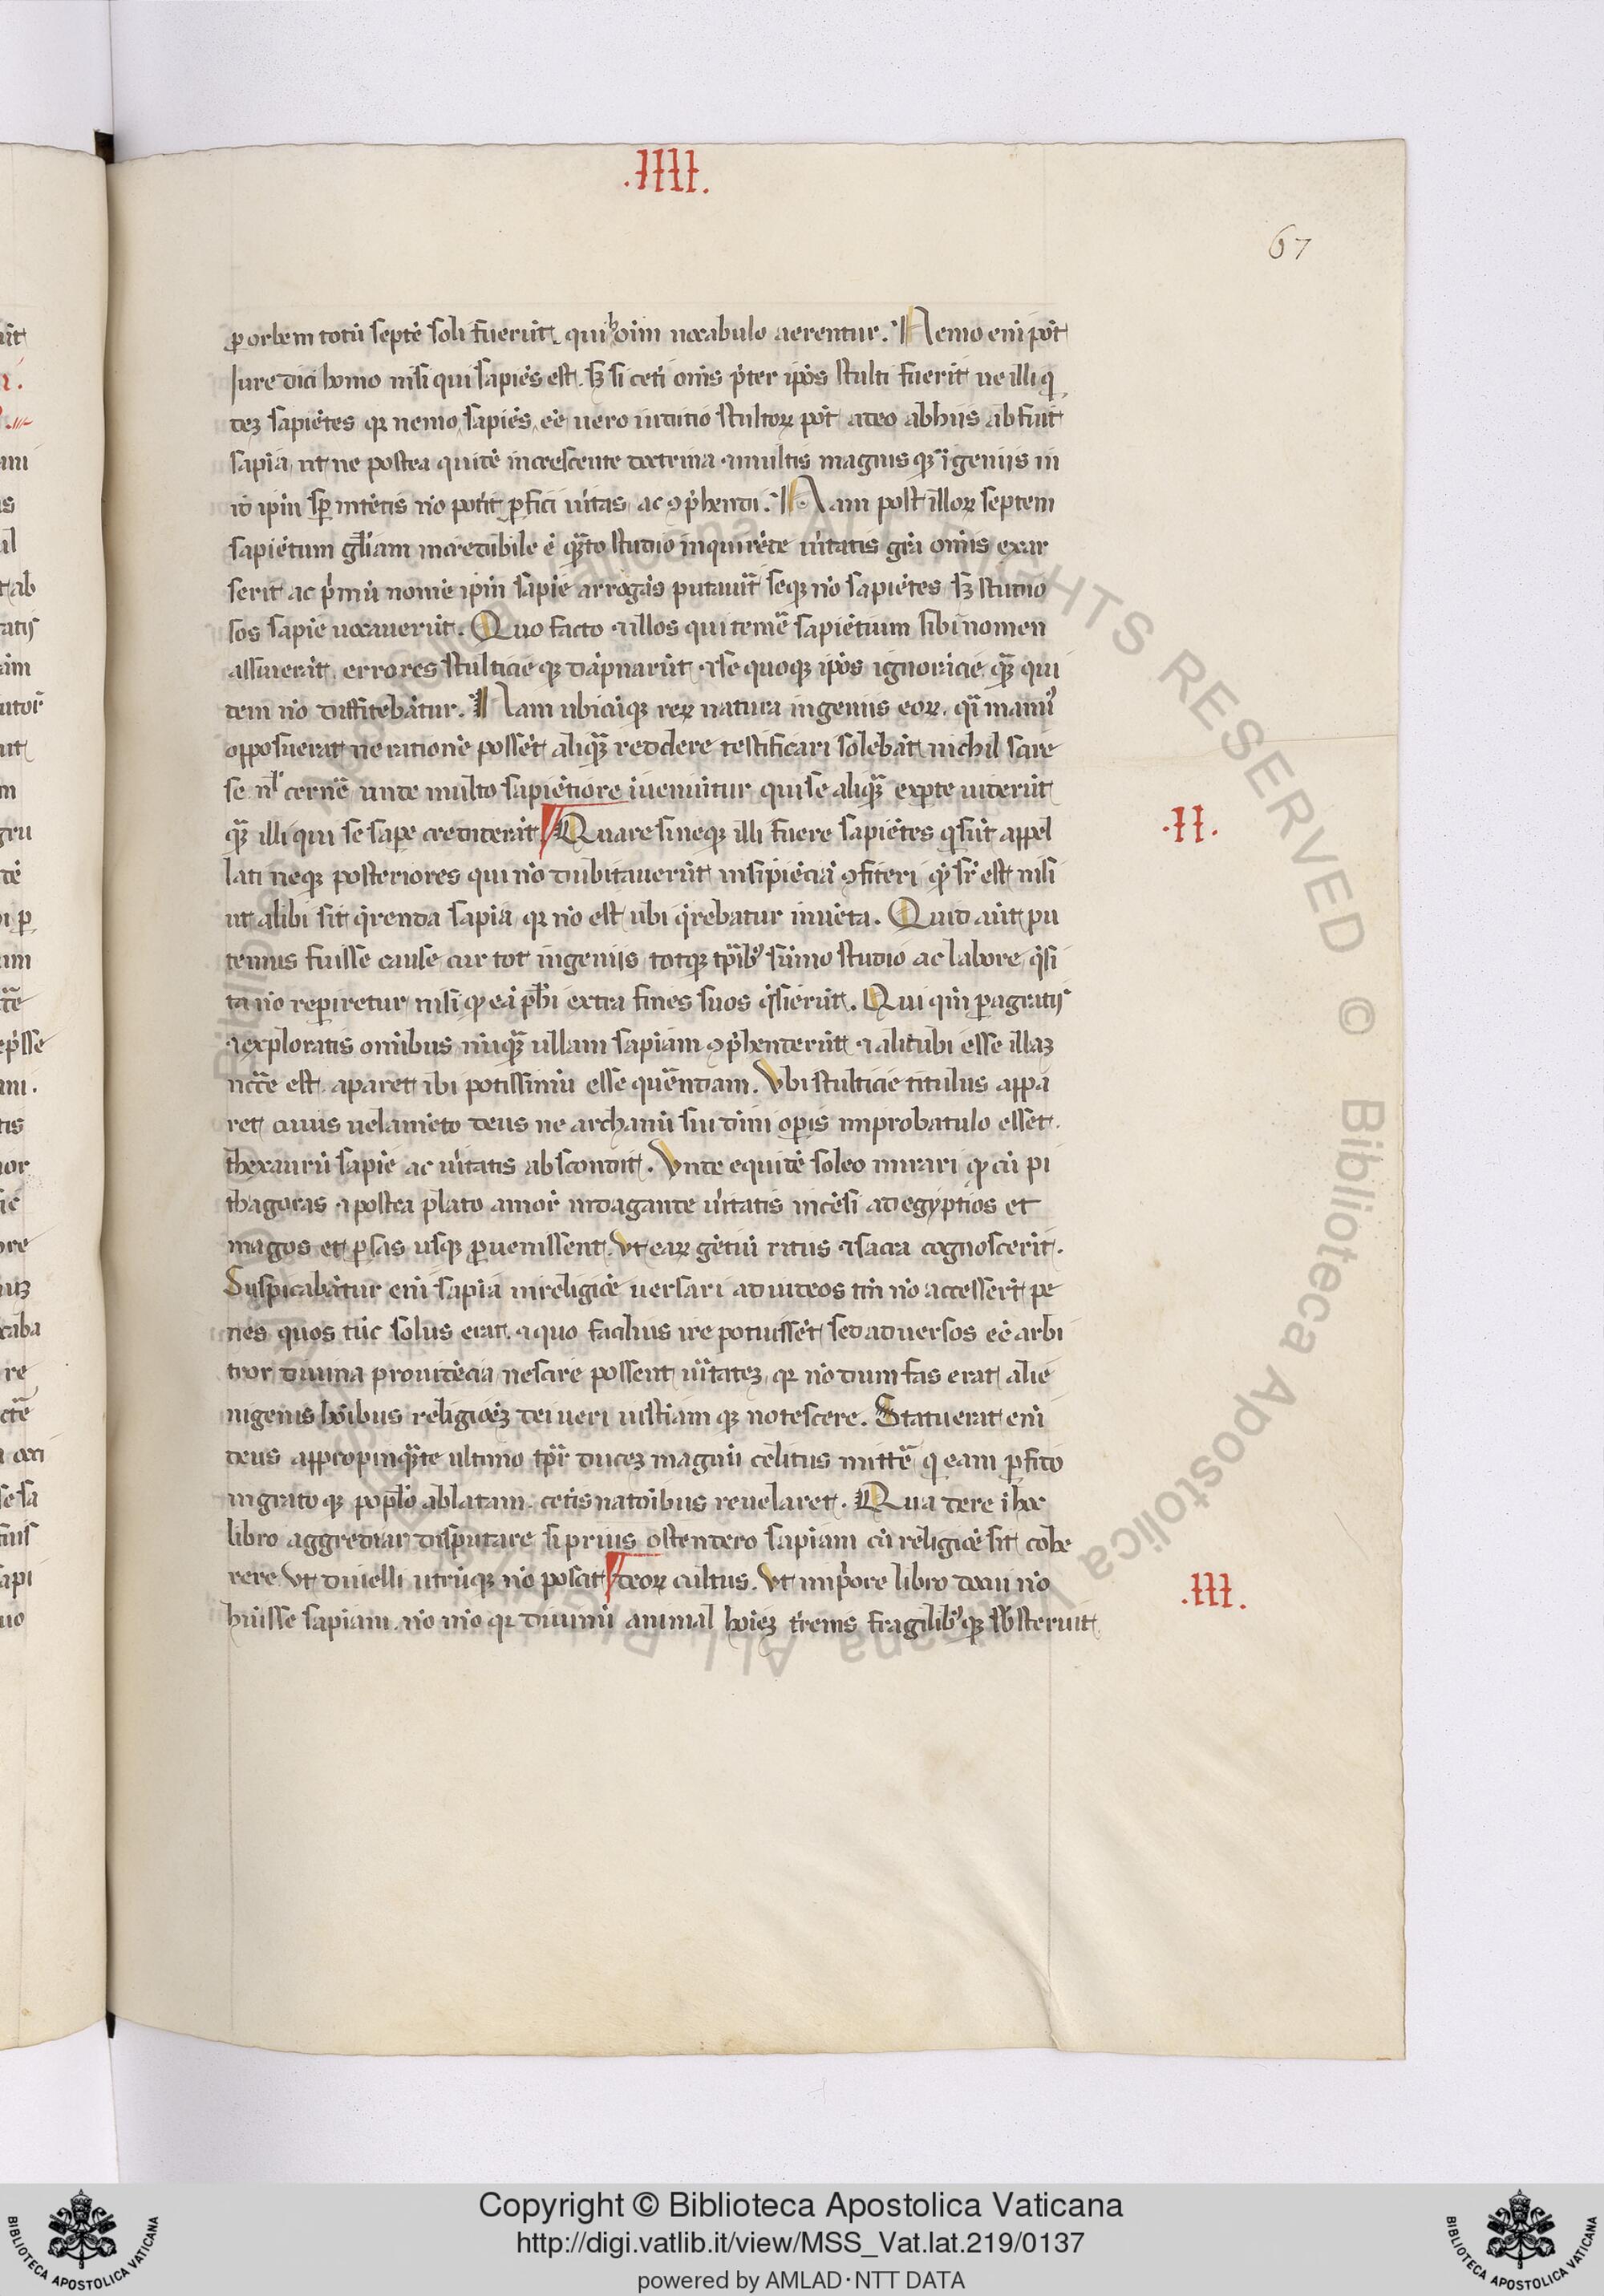 .IIII.
67
ꝑ orbem totū septē soli fuerūt. qui hoim̄ uocabulo cierentur. Nemo enī pōt
Jure dici homo nisi qui sapiēs est. sꝫ si ceti om̄s p̄ter ip̄os stulti fuerīt ne illi q
deꝫ sapiētes qꝛ nemo sapiēs eē uero iuditio stultoꝝ pōt adeo ab hiis abfuit
sapīa ut ne postea quidē increscente doctrina ⁊ multis magnis qꝫ īgeniis in
id ip̄m sꝑ intētis nō potīt ꝑfici ūitas ac ꝯp̄hendi. Nam post illoꝝ septem
sapiētum gl̄iam incredibile ē qᵃ̄to studio inquirēde ūitatis gr̄a om̄is exar
serit ac p̄mū nomīe ip̄m sapīe arrogās putauūt seqꝫ nō sapiētes sꝫ studio
sos sapīe uocauerūt. Quo facto ⁊ illos qui temē sapiētium sibi nomen
assuerāt errores stulticie qꝫ dāpnarūt ⁊ se quoqꝫ ip̄os ignorācie. qꝫ̄ qui
dem nō diffitebātur. Nam ubicūqꝫ reꝝ natura ingeniis eoꝝ. qᵃ̄i manus
opposuerat ne rationē possēt aliqᵃ̄ reddere testificari solebāt nichil scire
se nl̄ cernē̄ unde multo sapiētiore iueniūtur qui se aliqᵃ̄ exp̄te uiderūt
qᵃ̄ illi qui se sape crediderāt Quare si neqꝫ illi fuere sapiētes q sūt appel
.II.
lati neqꝫ posteriores qui nō dubitauerūt insipiēciā ꝯfiteri qd̄ sr̄ est nisi
ut alibi sit q̄renda sapīa qꝛ nō est ubi q̄rebatur inuēta. Quid aūt pu
temus fuisse cause cur tot ingeniis totqꝫ tp̄ib; sūmo studio ac labore q̄si
ta nō reperiretur nisi qꝫ eā ph̄i extra fines suos q̄sierūt. Qui qm̄ ꝑagratis
⁊ exploratis omībus nūqᵃ̄ ullam sapīam ꝯp̄henderūt ⁊ alicubi esse illaꝫ
nccē est. aparet ibi potissimū esse querendam. Vbi stulticie titulus appa
ret cuius uelamēto deus ne archanū sui diui op̄is in ꝓbatulo esset.
thexaurū sapīe ac ūitatis abscondit. Vnde equidē soleo mirari qꝫ cū pi
thagoras ⁊ postea plato amor̄ indagande ūitatis incēsi ad egyptios et
magos et ꝑsas usqꝫ ꝑuenissent. Vt eaꝝ gētiū ritus ⁊ sacra cognoscerīt.
Suspicabātur enī sapīa in religiōe uersari ad iudeos tm̄ nō accesserīt pe
nes quos tūc solus erat. ⁊ quo facilius ire potuissēt sed aduersos eē arbi
tror diuina prouidēcia nescire possent ūitateꝫ qꝛ nōdum fas erat alie
nigenis hoībus religiōeꝫ dei ueri iustīam qꝫ notescere. Statuerat enī
deus appropinqᵃ̄te ultimo tp̄r duceꝫ magnū celitus mittē q eam ꝑfido
ingrato qꝫ poplō ablatam. cetis natoībus reuelaret. Qua de re ī hoc
libro aggrediar disputare si prius ostendero sapīam cū religiōe sit cohe
rere Vt diuelli utrūqꝫ nō posait deoꝝ cultus. Vt in p̄ore libro docui nō
.III.
hūisse sapīam. nō mō qꝛ diuinū animal hoīeꝫ t̄renis fragilib; qꝫ sb̄sternit
Copyright © Biblioteca Apostolica Vaticana
http://digi.vatlib.it/view/MSS_Vat.lat.219/0137
powered by AMLAD·NTT DATA